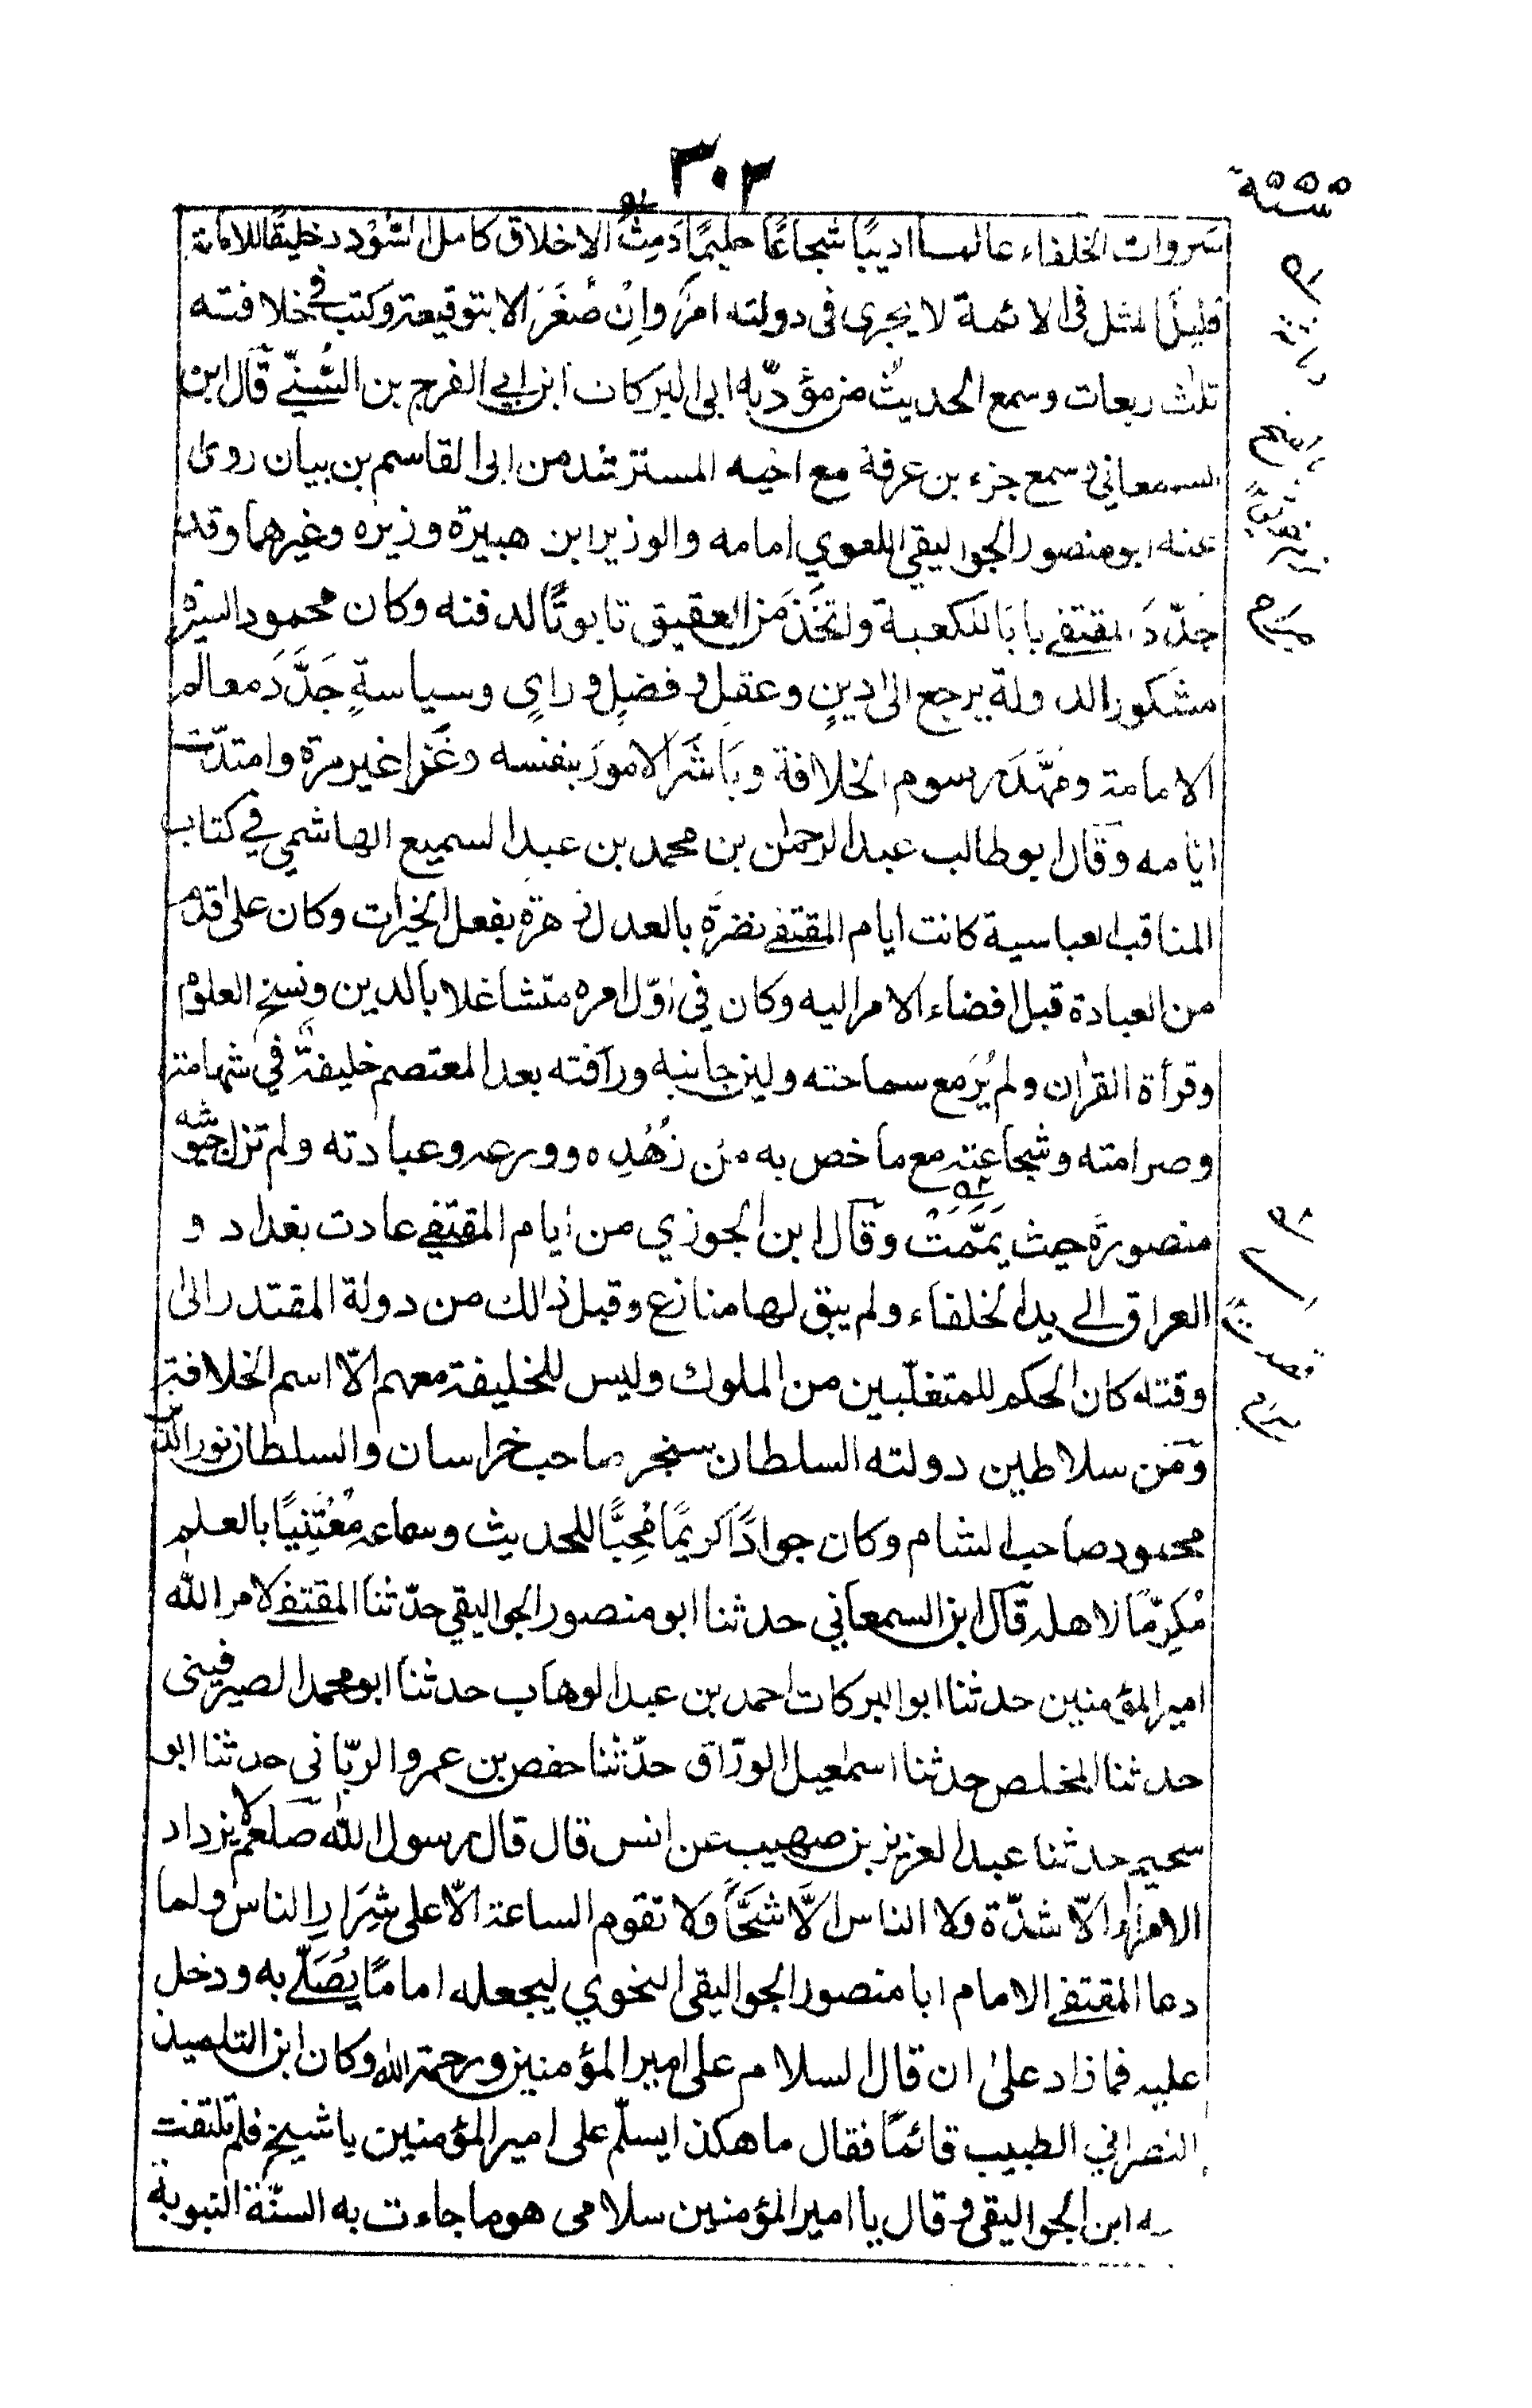 ٣٠٣
سروات الخلفاء عالما اديبًا شجاعًا حليمًا دَمِثَ الاخلاق كامل السُّوْدد خليقًا للامامة
قليل المثل فى الائمة لا يجرى فى دولته امرٌ وان صَغَر الا بتوقيعه وكتب فى خلافته
ثلث ربعات وسمع الحديث من مؤدّبه ابى البركات ابن ابي الفرج بن السُّنِّي قال ابن
السمعاني وسمع جزء بن عرفة مع اخيه المسترشد من ابى القاسم بن بيان روى
عنه ابو منصور الجواليقي اللغوي امامه والوزير ابن هبيرة وزيره وغيرهما وقد
جدّدَ المقتفي بابًا للكعبة واتخَذَ من العقيق تابوتًا لدفنه وكان محمود السيرة
مشكور الدولة يرجع الى دينٍ وعقلٍ وفضلٍ ورايٍ وسياسةٍ جَدَّدَ معالم
الامامة ومَهَّدَ رسوم الخلافة وبَاشَرَ الامورَ بنفسه وغَزا غير مرة وامتدّت
ايامه وقال ابو طالب عبد الرحمٰن بن محمد بن عبد السميع الهاشمي في كتاب
المناقب العباسية كانت ايام المقتفي نضرة بالعدل زهرة بفعل الخيرات وكان على قدم
من العبادة قبل افضاء الامر اليه وكان في اوّل امره متشاغلا بالدين ونسخ العلوم
وقرأة القران ولم يُرَ مع سماحته ولين جانبه ورآفته بعد المعتصم خليفةٌ في شهامته
وصرامته وشجاعته مع ما خص به من زُهْدِه وورعه وعبادته ولم تزل جيوشه
منصورةً حيث يَمَّمَتْ وقال ابن الجوزي من ايام المقتفي عادت بغداد و
العراق الى يد الخلفاء ولم يبق لها منازع وقبل ذالك من دولة المقتدر الى
وقته كان الحكم للمتغلّبين من الملوك وليس للخليفة معهم الّا اسم الخلافة
ومن سلاطين دولته السلطان سنجر صاحب خراسان والسلطان نور الدين
محمود صاحب الشام وكان جوادًا كريمًا مُحِبًّا للحديث وسماعه مُعْتَنِيًا بالعلم
مُكرِمًا لاهله قال ابن السمعاني حدثنا ابو منصور الجواليقي حدّثنا المقتفي لامر الله
امير المؤمنين حدثنا ابو البركات احمد بن عبد الوهاب حدثنا ابو محمد الصيرفينى
حدثنا المخلص حدثنا اسمٰعيل الورّاق حدّثنا حفص بن عمرو الربّانى حدثنا ابو
سحيم حدثنا عبد العزيز بن صهيب عن انس قال قال رسول الله صلعم لا يزداد
الامر الّا شدّة ولا الناس الَّا شَحًّا ولا تقوم الساعة الّا على شِرَارِ الناس ولما
دعا المقتفي الامام ابا منصور الجواليقى النحوي ليجعله امامًا يُصَلّي به ودخل
عليه فما زاد علىٰ ان قال السلام على امير المؤمنين ورحمة الله وكان ابن التلميذ
النصراني الطبيب قائمًا فقال ما هكذا يسلّم على امير المؤمنين يا شيخ فلم تلتفت
ـه ابن الجواليقى وقال يا امير المؤمنين سلامى هو ما جاءت به السنّة النبوية